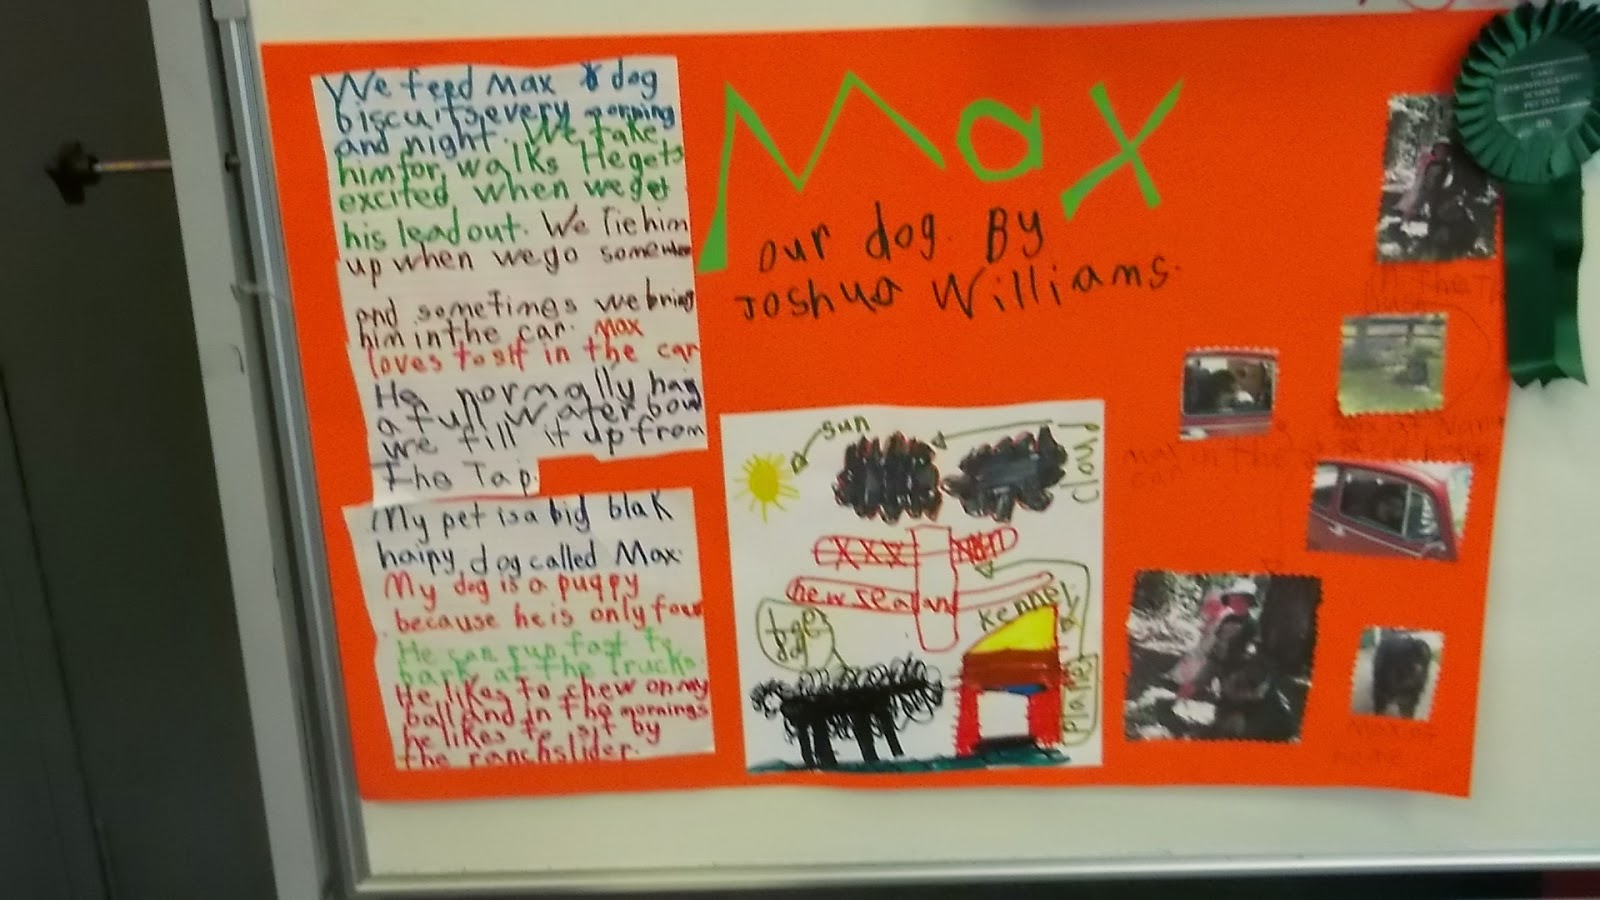 Max
our dog. By
Joshua Williams.
We feed Max & dog
biscuits, every morning
and night. We take
him for, walks He gets
excited, when we get
his lead out. We Tie him
up when we go
and sometimes we bring
him in the car. Max
loves to sit in the car
He normally has
a full water bowl
we fill it up from
The Tap.
My pet is a big blak
hairy, dog called Max.
My dog is a puppy
because he is only four
He can run fast To
bark at the Trucks.
He likes To chew on my
ball And in The mornings
he likes to sit by
the ranchslider.
sun
cloud
new sealand
kennel
max in the
car